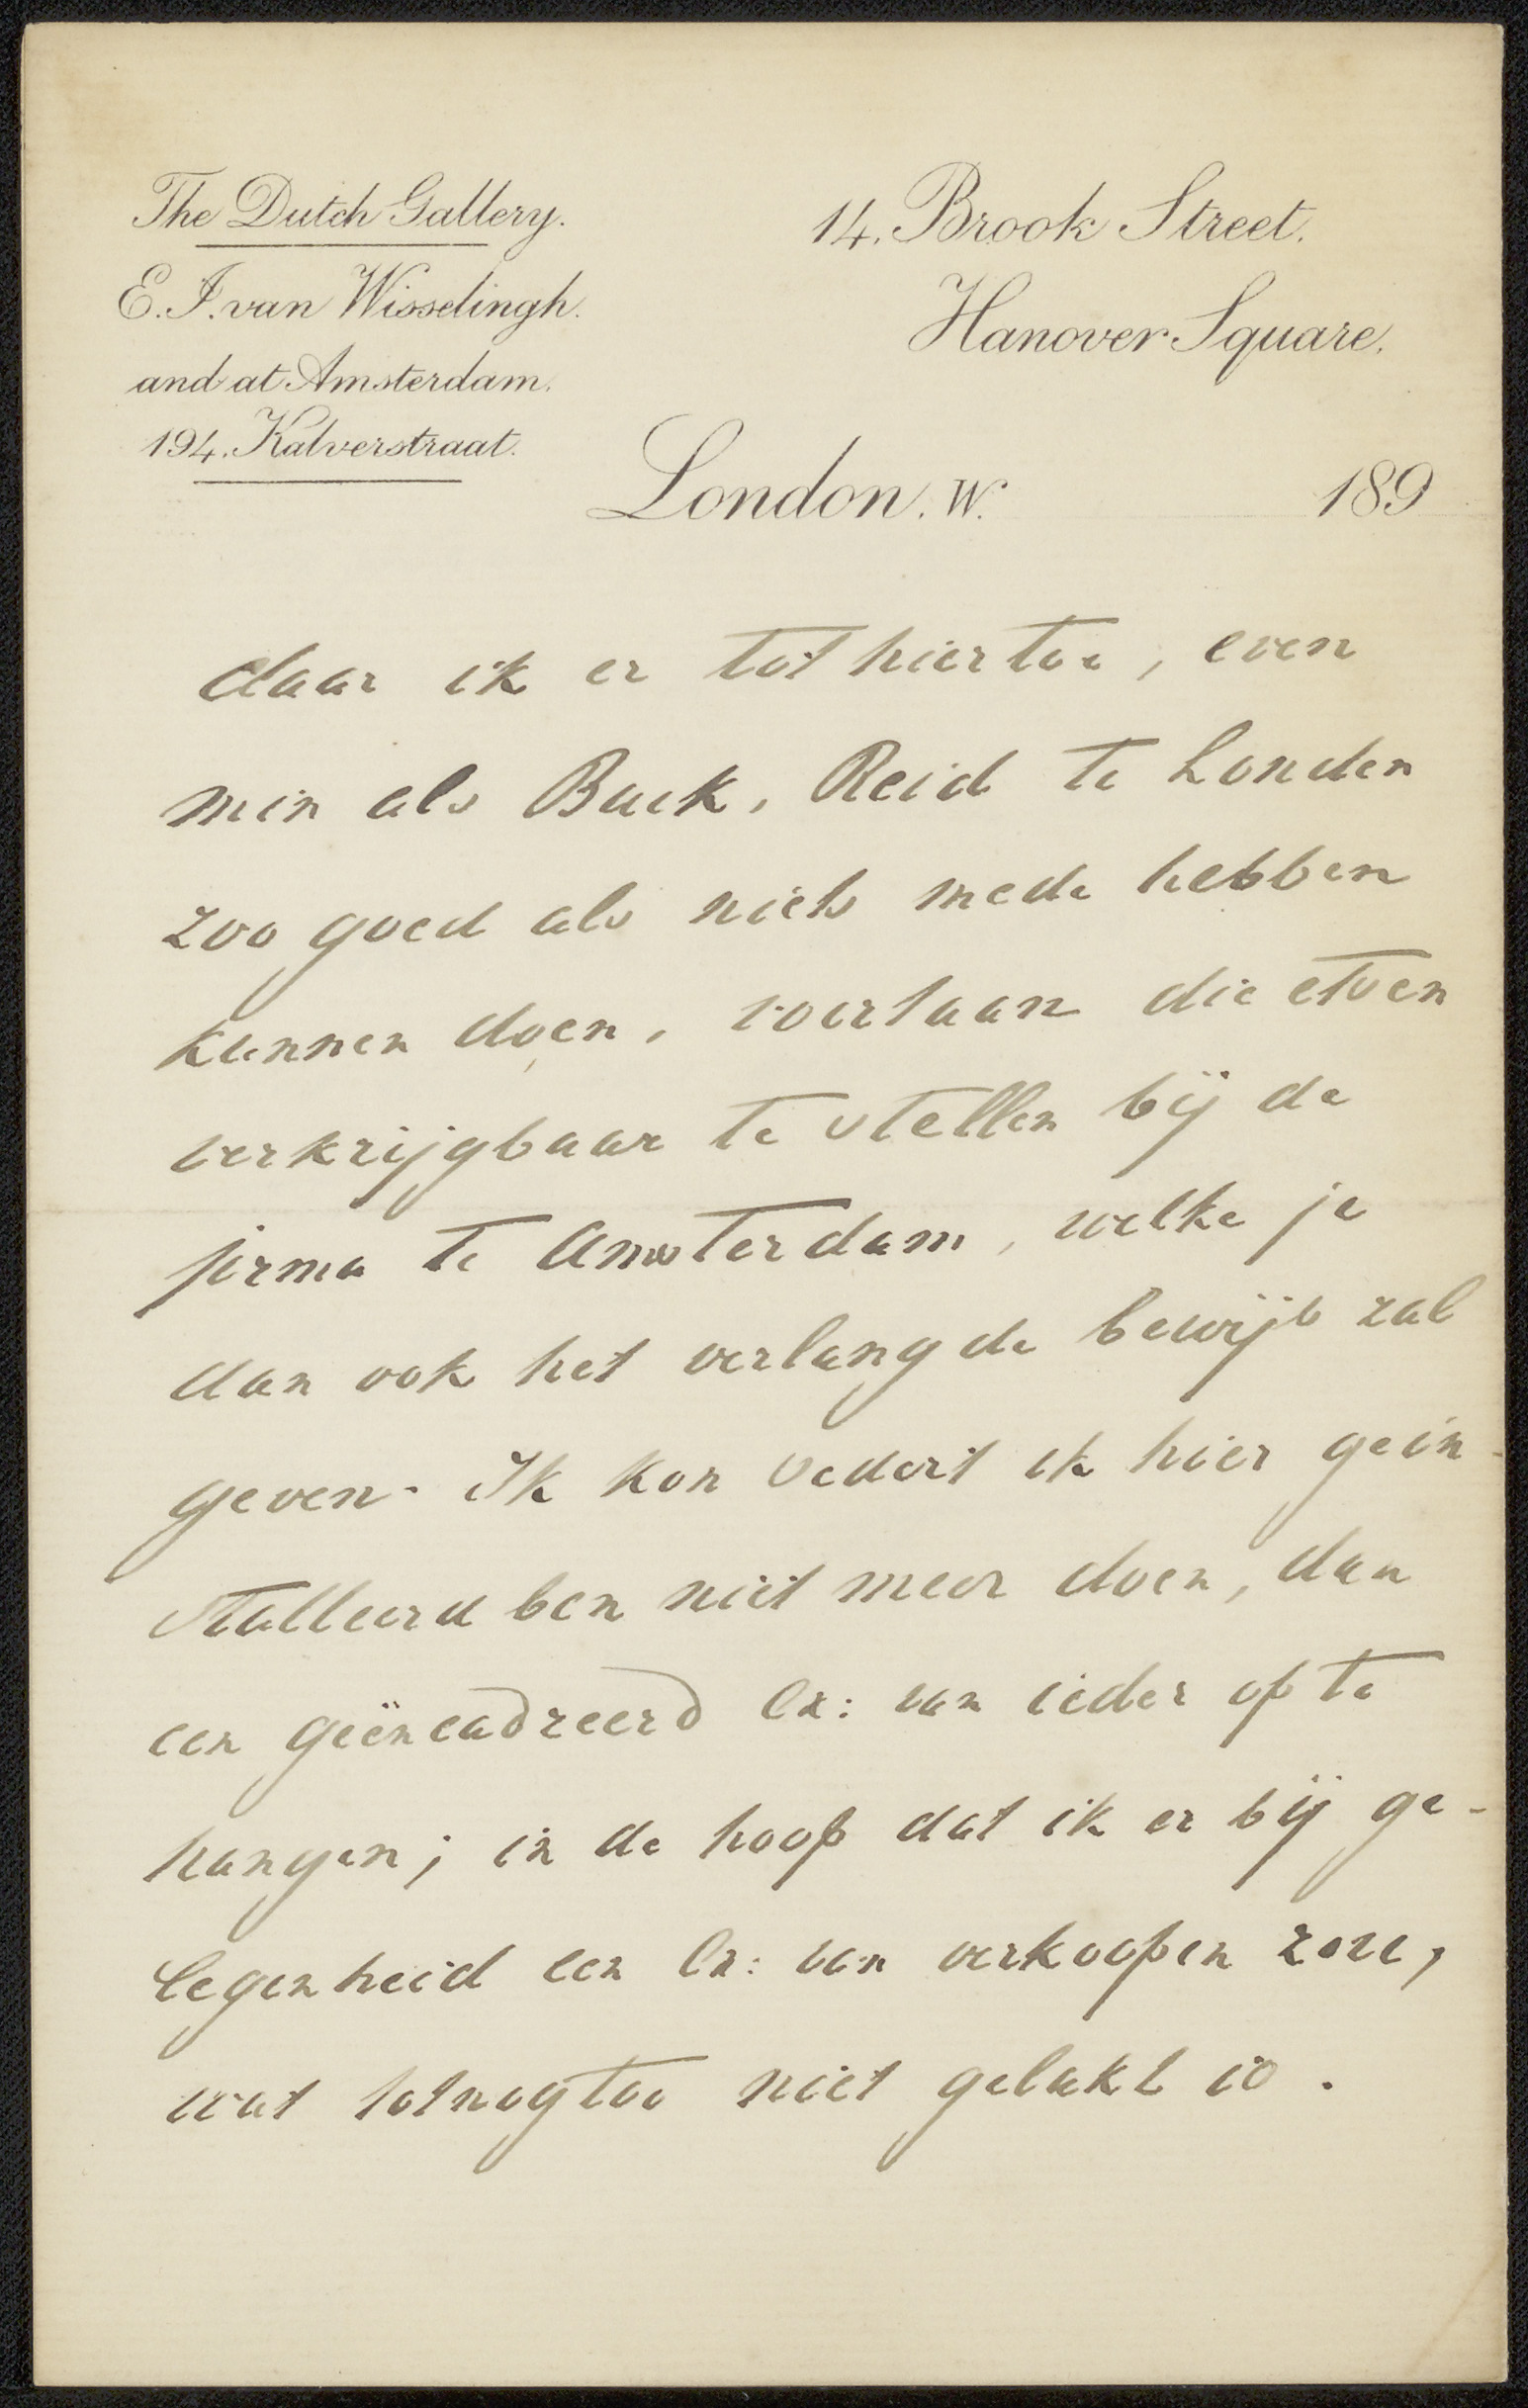 The Dutch Gallery.
E. J. van Wisselingh.
and at Amsterdam.
194. Kalverstraat.
14. Brook Street.
Hanover Square.
London. W. 189
daar ik er tot hiertoe, even
min als Buck, Reid te Londen
zoo goed als niets mede hebben
kunnen doen, voortaan die etsen
verkrijgbaar te stellen bij de
firma te Amsterdam, welke je
dan ook het verlangde bewijs zal
geven. Ik kon sedert ik hier gein-
stalleerd ben niet meer doen, dan
een geëncadreerd Ex: van ieder op te
hangen; in de hoop dat ik er bij ge-
legenheid een Ex: van verkoopen zou,
wat totnogtoe niet gelukt is.